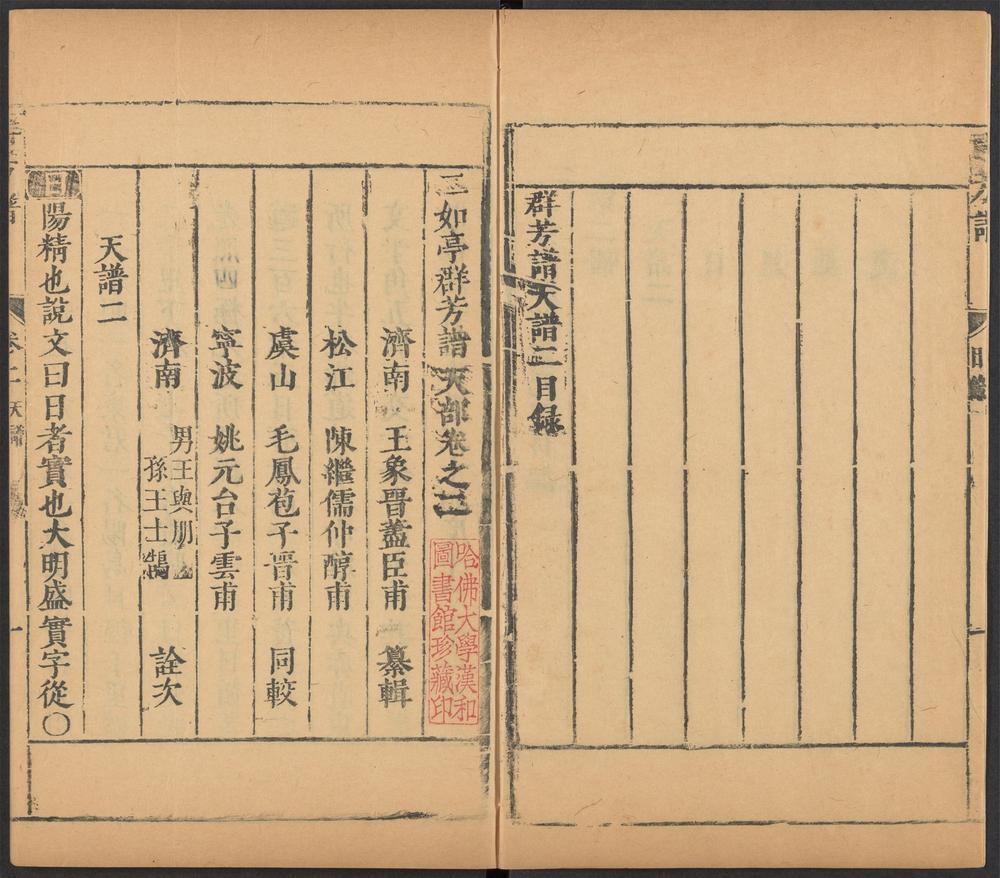 群芳譜天譜二目録
二如亭群芳譜天部卷之二
濟南 王象晉藎臣甫 纂輯
松江 陳繼儒仲醇甫
虞山 毛鳳苞子晉甫 同較
寧波 姚元台子雲甫
濟南 男王與朋
孫王士鵠 詮次
天譜二
日 陽精也說文曰日者實也大明盛實字從〇
卷二 天譜 一
哈佛大學漢和
圖書館珍藏印